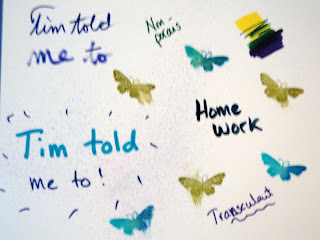 Tim told
me to
Non-
porous
Home
work
Tim told
me to!